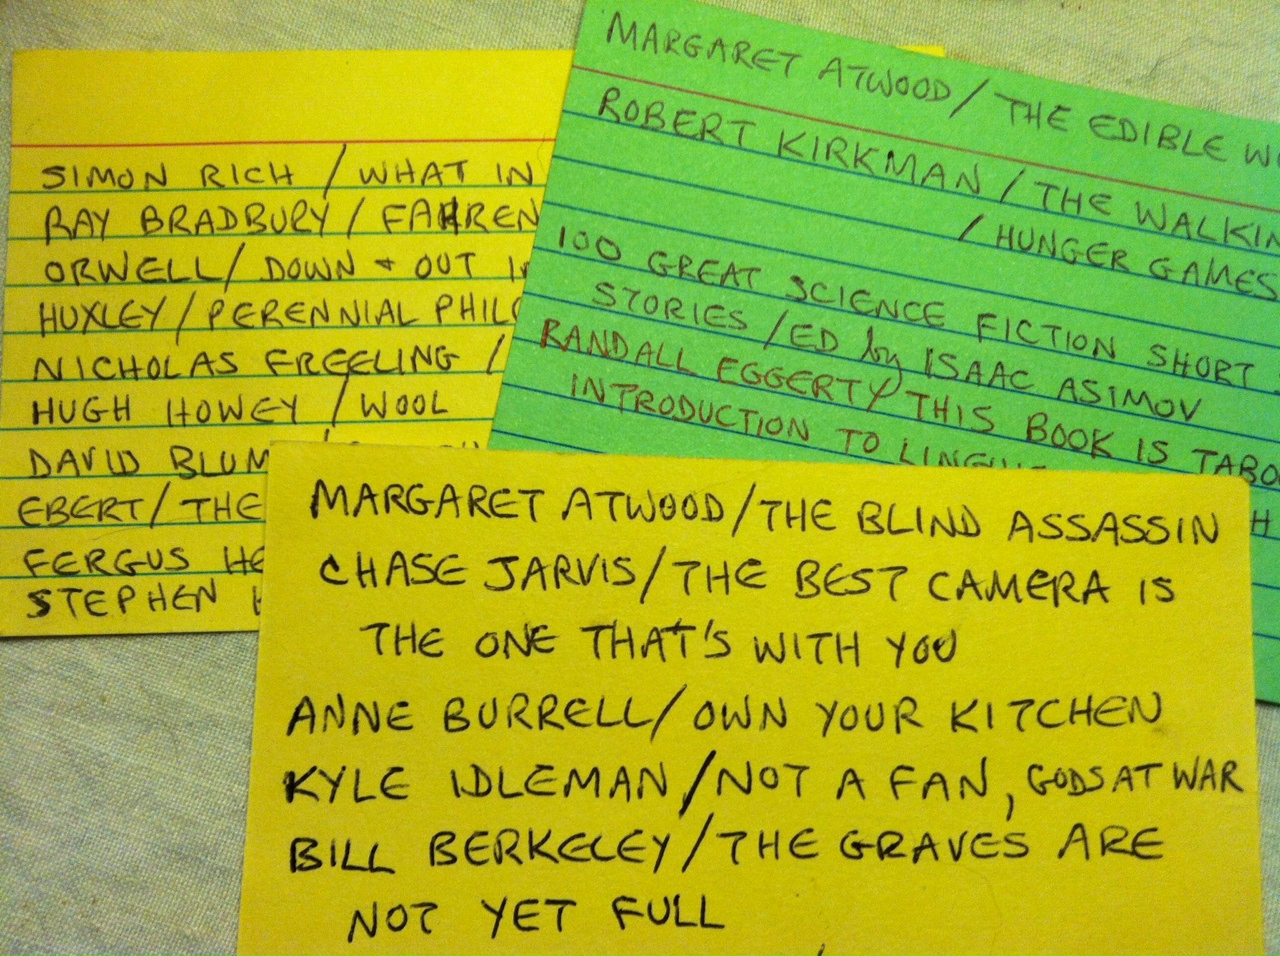 SIMON RICH / WHAT IN
RAY BRADBURY / FAHREN
ORWELL / DOWN + OUT
HUXLEY / PERENNIAL PHILO
NICHOLAS FREELING /
HUGH HOWEY / WOOL
DAVID BLUM
EBERT / THE
FERGUS HE
STEPHEN
MARGARET ATWOOD / THE EDIBLE
ROBERT KIRKMAN / THE WALKIN
/ HUNGER GAMES
100 GREAT SCIENCE FICTION SHORT
STORIES / ED by ISAAC ASIMOV
RANDALL EGGERTY / THIS BOOK IS TABO
INTRODUCTION TO LINGUI
H
MARGARET ATWOOD / THE BLIND ASSASSIN
CHASE JARVIS / THE BEST CAMERA IS
THE ONE THAT'S WITH YOU
ANNE BURRELL / OWN YOUR KITCHEN
KYLE IDLEMAN / NOT A FAN, GODS AT WAR
BILL BERKELEY / THE GRAVES ARE
NOT YET FULL